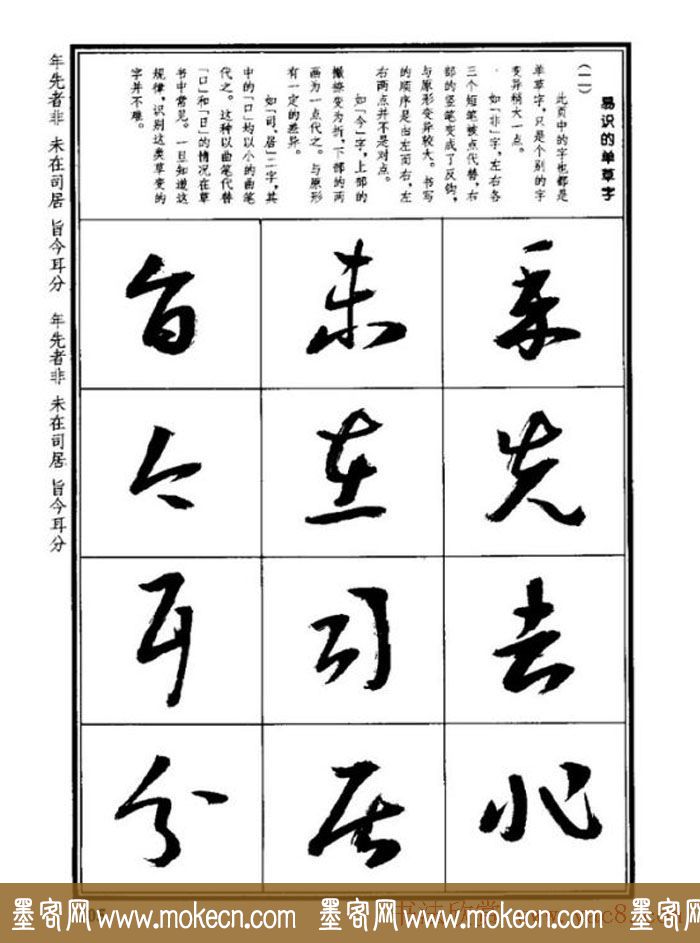 易识的单草字
(二)
此页中的字也都是
单草字，只是个别的字
变异稍大一点。
如「非」字，左右各
三个短笔被点代替，右
部的竖笔变成了反钩，
与原形变异较大。书写
的顺序是由左而右，左
右两点并不是对点。
如「今」字，上部的
撇捺变为折，下部的两
画为一点代之。与原形
有一定的差异。
如「司、居」二字，其
中的「口」均以小的曲笔
代之。这种以曲笔代替
「口」和「日」的情况在草
书中常见。一旦知道这
规律，识别这类草变的
字并不难。
年先者非
未在司居
旨今耳分
年先者非 未在司居 旨今耳分 年先者非 未在司居 旨今耳分
墨客网 www.mokecn.com 墨客网 www.mokecn.com 墨客网
书法欣赏